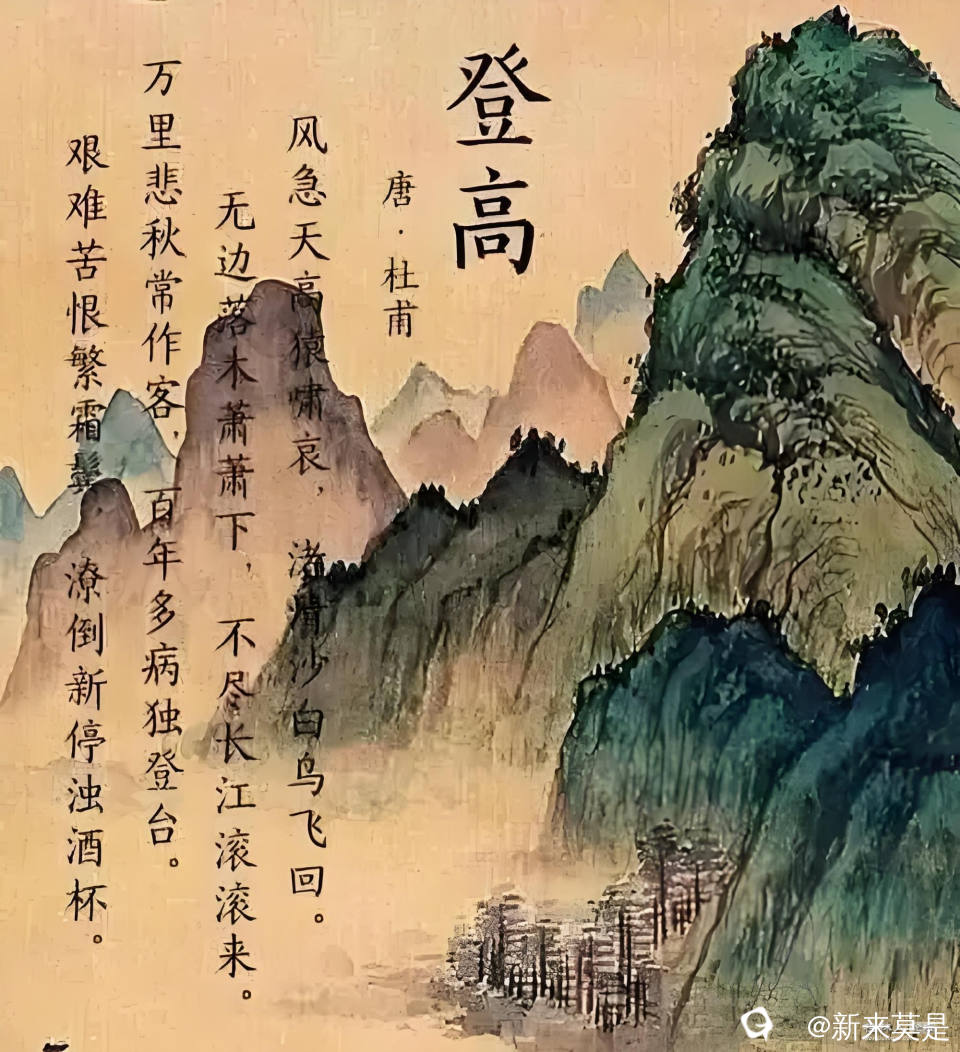 登高
唐·杜甫
风急天高猿啸哀，渚清沙白鸟飞回。
无边落木萧萧下，不尽长江滚滚来。
万里悲秋常作客，百年多病独登台。
艰难苦恨繁霜鬓，潦倒新停浊酒杯。
@新来莫是